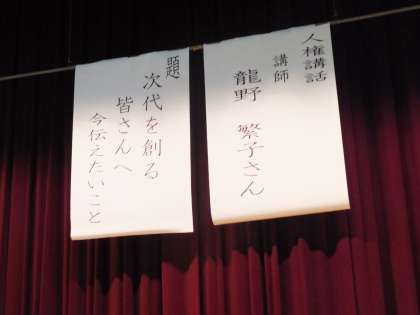 人権講話
講師
龍野 繁子さん
題
次代を創る
皆さんへ
今伝えたいこと